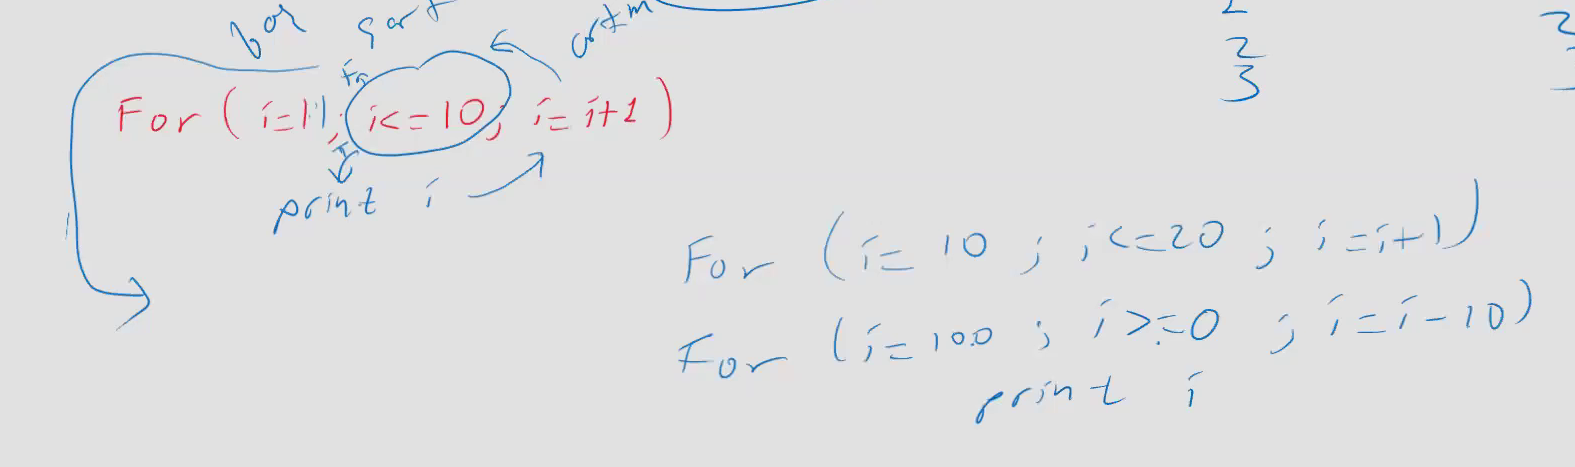 şart
artm
2
3
For ( i=1 ; i<=10 ; i= i+1 )
print i
For ( i= 10 ; i<=20 ; i =i+1 )
For ( i= 100 ; i>=0 ; i=i-10 )
print i